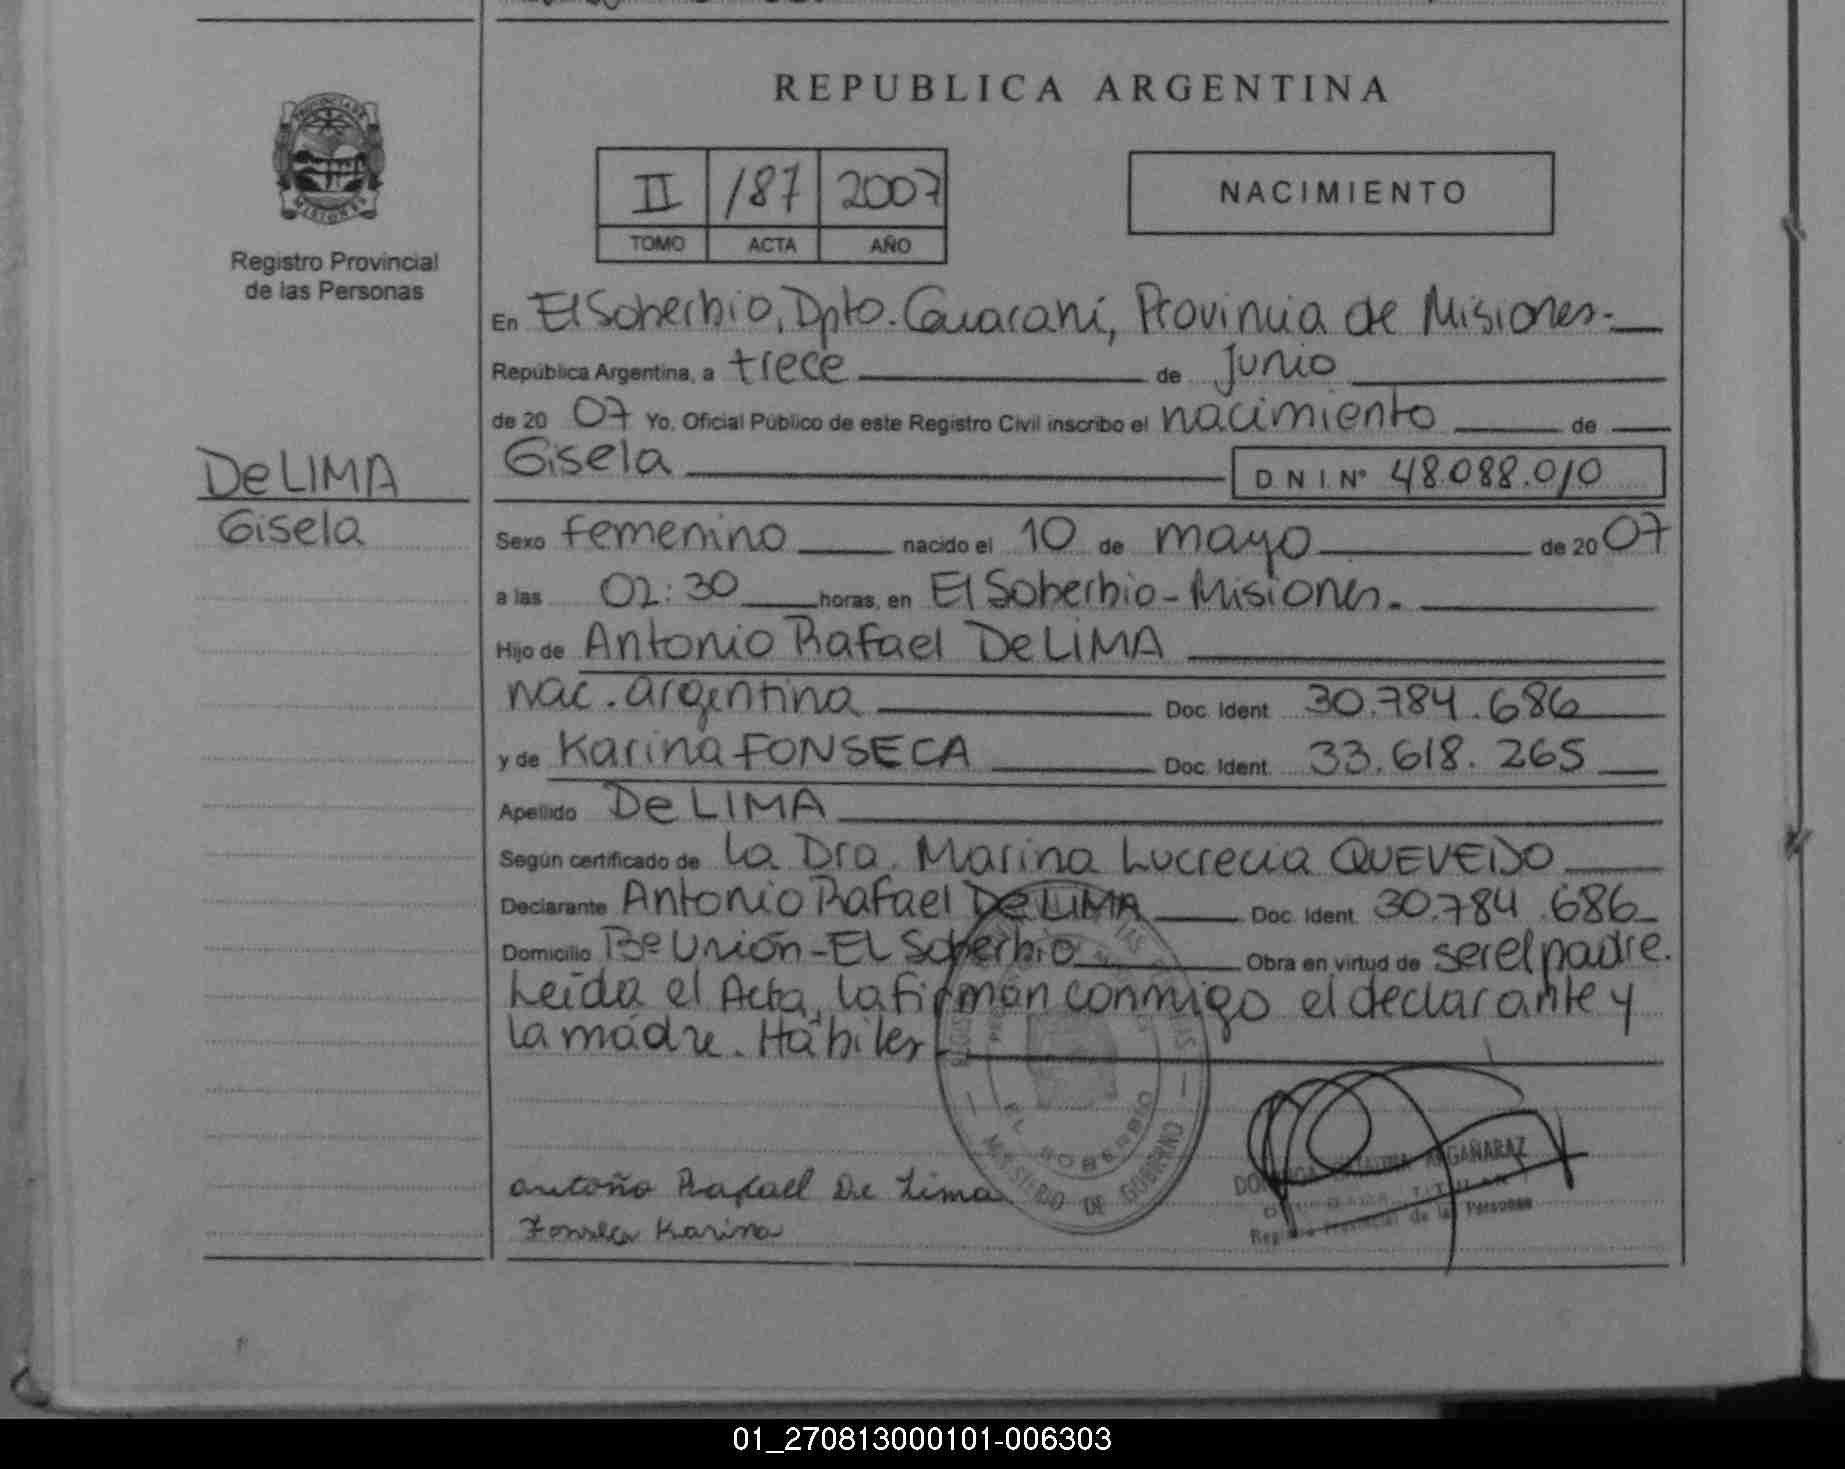 REPUBLICA ARGENTINA
PROVINCIA DE
MISIONES
Registro Provincial
de las Personas
II 187 2007
TOMO ACTA AÑO
NACIMIENTO
En El Soberbio, Dpto. Guaraní, Provincia de Misiones.
República Argentina, a trece de junio
de 20 07 Yo, Oficial Público de este Registro Civil inscribo el nacimiento de
De LIMA
Gisela
Gisela D N I. N° 48.088.010
Sexo femenino nacido el 10 de mayo de 20 07
a las 02:30 horas, en El Soberbio - Misiones.
Hijo de Antonio Rafael De LIMA
nac. argentina Doc. Ident. 30.784.686
y de Karina FONSECA Doc. Ident. 33.618.265
Apellido De LIMA
Según certificado de la Dra. Marina Lucrecia QUEVEDO
Declarante Antonio Rafael De LIMA Doc. Ident. 30.784.686
Domicilio Bº Unión - El Soberbio Obra en virtud de ser el padre.
Leída el Acta, la firman conmigo el declarante y
la madre. Hábiles
EL SOBERBIO
MINISTERIO DE GOBIERNO
antoño Rafael De Lima
Fonseca Karina
ARGAÑARAZ
Registro Provincial de las Personas
01_270813000101-006303